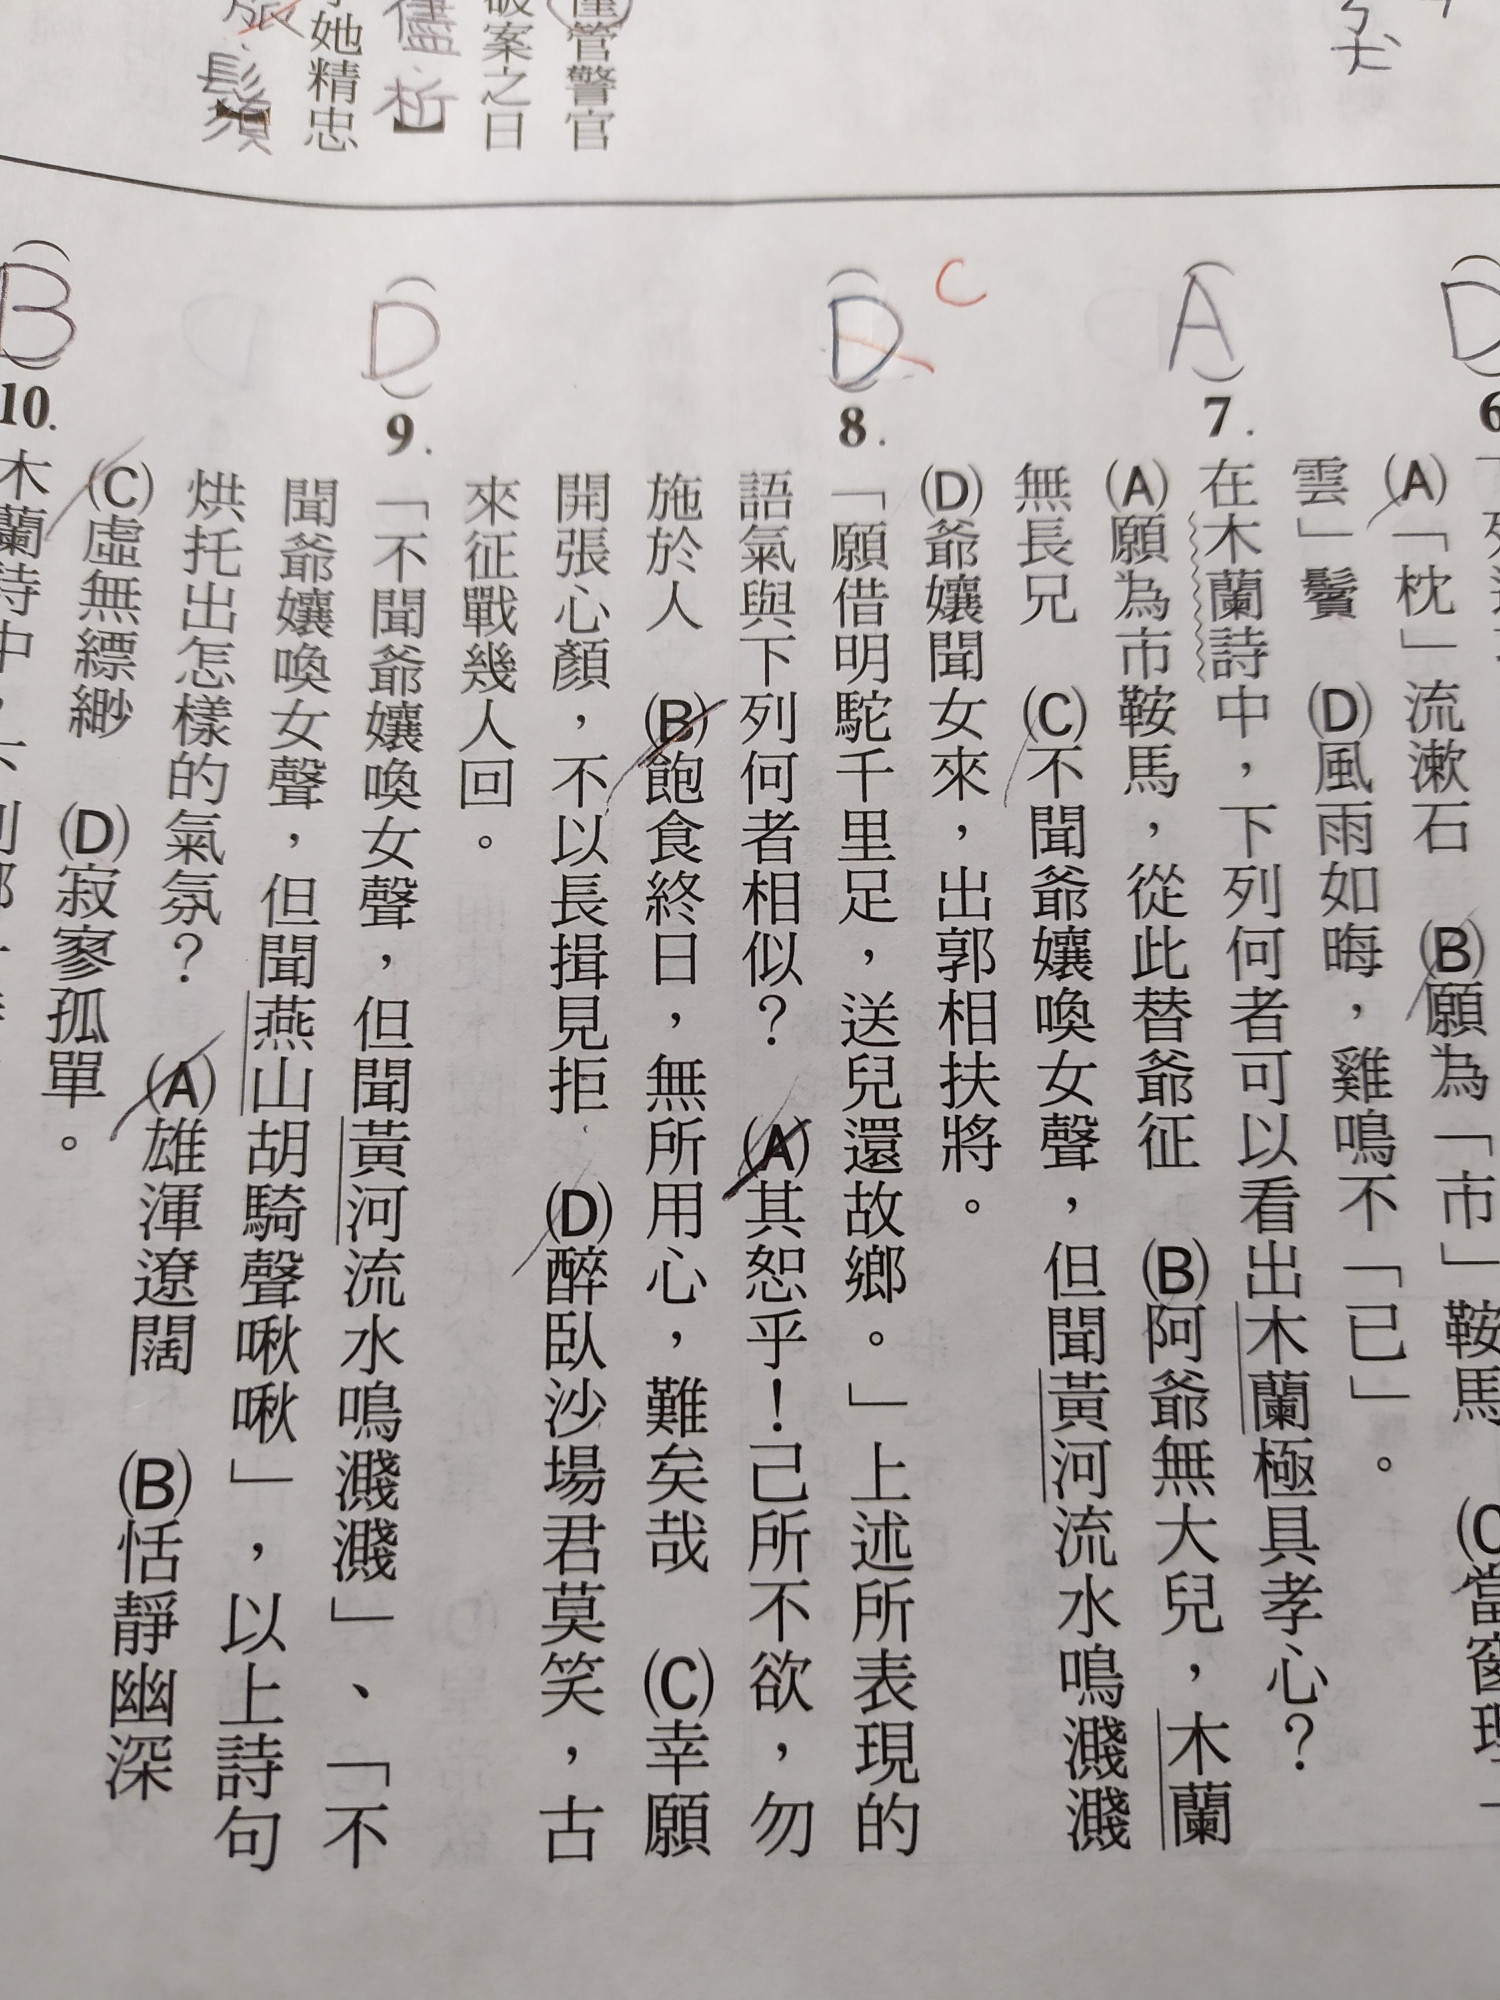 僅管警官
破案之日
儘
析】
她精忠
旅
鬚
D
6
(A)「枕」流漱石 (B)願為「市」鞍馬
雲」鬢 (D)風雨如晦，雞鳴不「已」。
A
7.
在木蘭詩中，下列何者可以看出木蘭極具孝心？
(A)願為市鞍馬，從此替爺征 (B)阿爺無大兒，木蘭
無長兄 (C)不聞爺孃喚女聲，但聞黃河流水鳴濺濺
(D)爺孃聞女來，出郭相扶將。
C
D
8.
「願借明駝千里足，送兒還故鄉。」上述所表現的
語氣與下列何者相似？ (A)其恕乎！己所不欲，勿
施於人 (B)飽食終日，無所用心，難矣哉 (C)幸願
開張心顏，不以長揖見拒 (D)醉臥沙場君莫笑，古
來征戰幾人回。
D
9.
「不聞爺孃喚女聲，但聞黃河流水鳴濺濺」、「不
聞爺孃喚女聲，但聞燕山胡騎聲啾啾」，以上詩句
烘托出怎樣的氣氛？ (A)雄渾遼闊 (B)恬靜幽深
(C)虛無縹緲 (D)寂寥孤單。
B
10.
木蘭詩中，下列